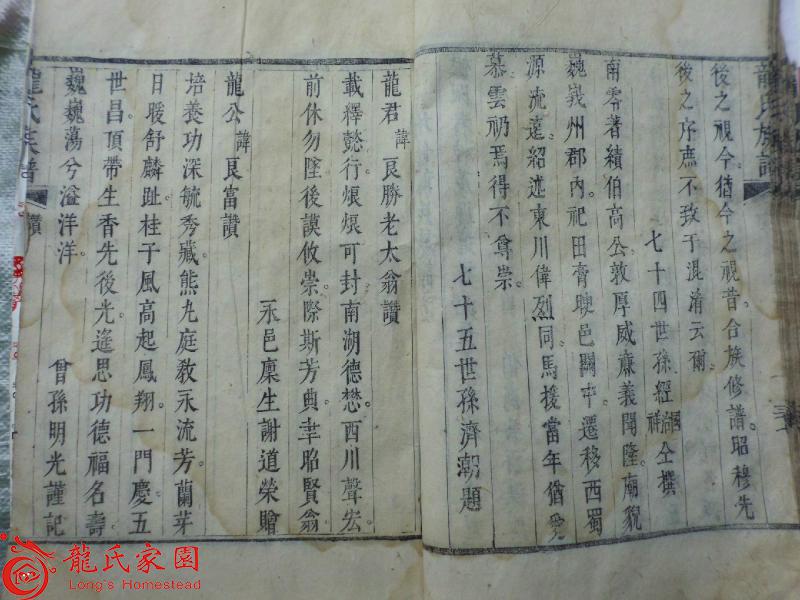 龍氏族譜
後之視今猶今之視昔。合族修譜。昭穆先
後之序庶不致于混淆云爾。
七十四世孫經 治 祥 仝撰
南零著績伯高公敦厚威廉義聞隆。廟貌
巍峩州郡內。祀田膏腴邑關中。遷移西蜀
源流遠。紹述東川偉烈同。馬援當年猶
慕雲礽焉得不尊崇。
七十五世孫濟潮題
龍君諱良勝老太翁讚
載釋懿行。煨煨可封南湖德懋。西川聲宏。
前休勿墜後謨攸崇。際斯芳典。幸昭賢翁。
永邑廩生謝道榮贈
龍公諱良富讚
培養功深毓秀藏。熊丸庭教永流芳蘭芽
日暖舒麟趾。桂子風高起鳳翔。一門慶五
世昌。頂帶生香先後光。遙思功德福名壽
巍巍蕩兮溢洋洋。
曾孫明光謹記
龍氏族譜
讚
龍氏家園
Long's Homestead